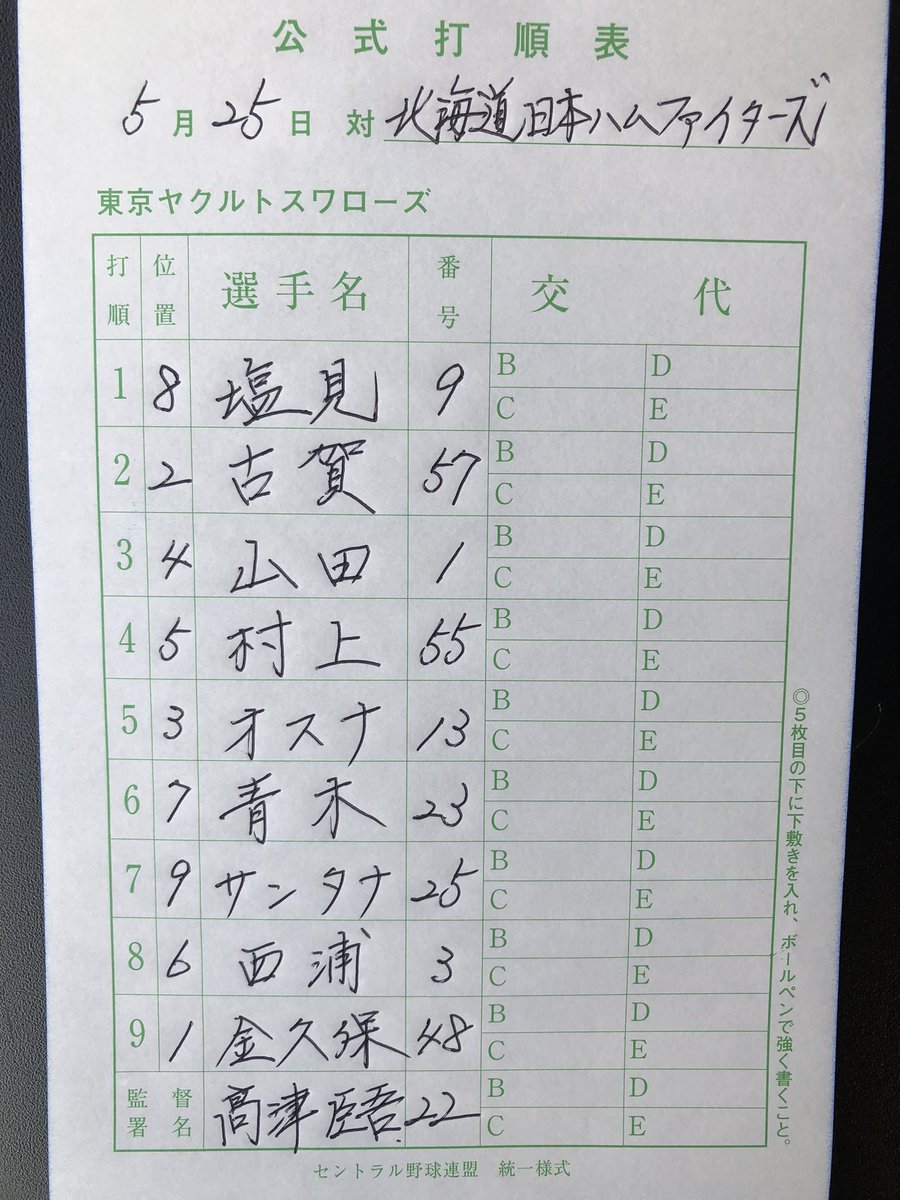 公式打順表
5月25日 対 北海道日本ハムファイターズ
東京ヤクルトスワローズ
打順 位置 選手名 番号 交代
1 8 塩見 9 B D C E
2 2 古賀 57 B D C E
3 4 山田 1 B D C E
4 5 村上 55 B D C E
5 3 オスナ 13 B D C E
6 7 青木 23 B D C E
7 9 サンタナ 25 B D C E
8 6 西浦 3 B D C E
9 1 金久保 48 B D C E
監督署名 高津臣吾 22 B D C E
◎5枚目の下に下敷きを入れ、ボールペンで強く書くこと。
セントラル野球連盟 統一様式